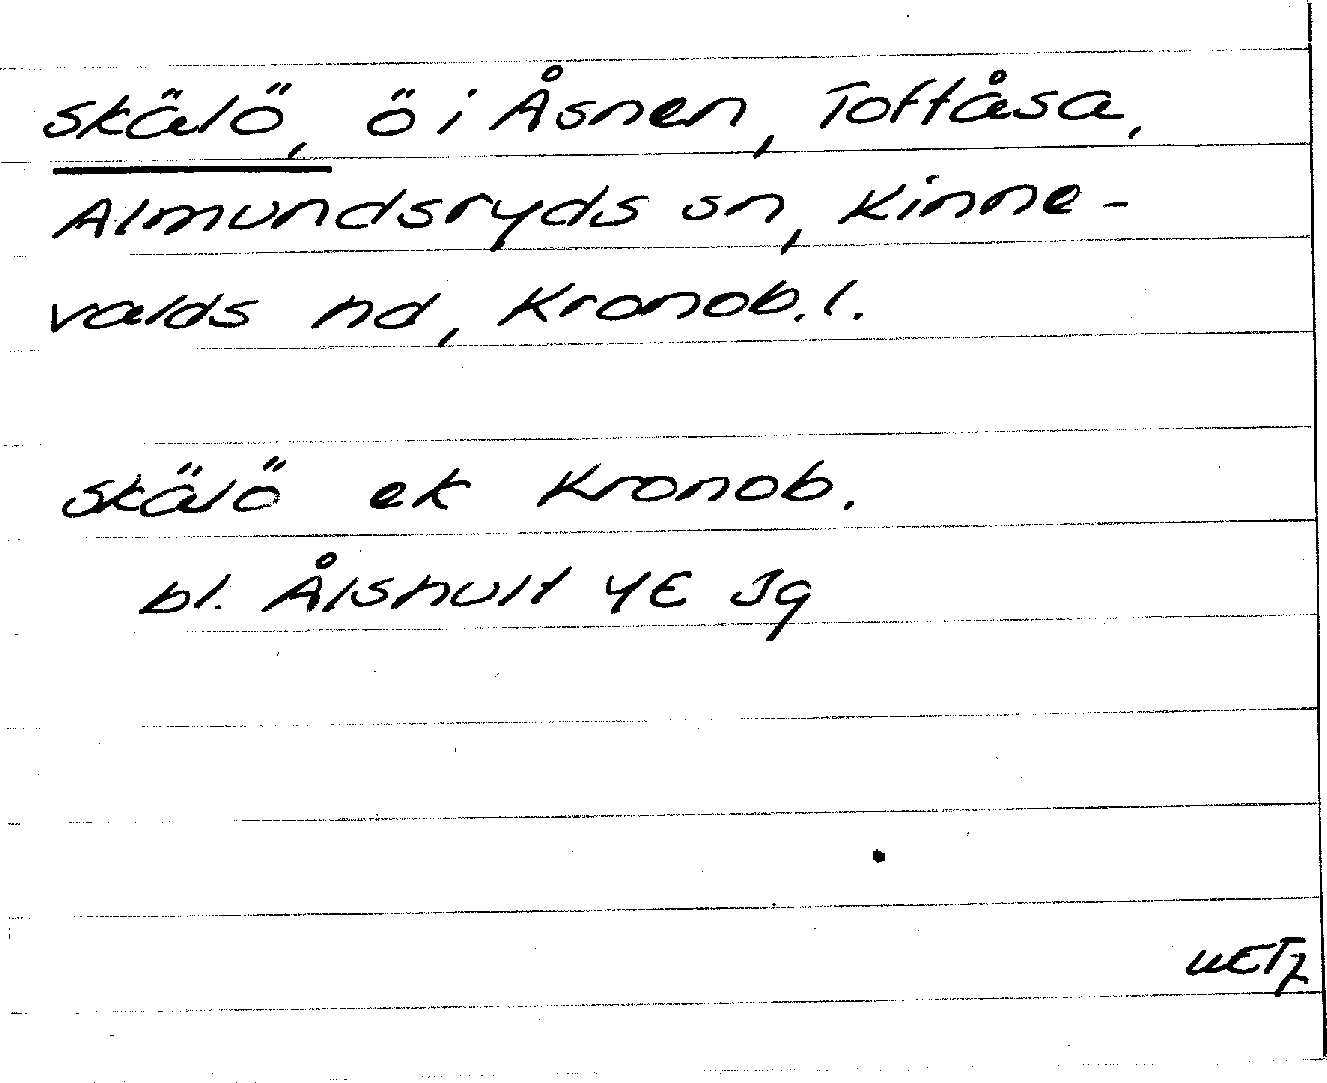 Skälö, ö i Åsnen, Toftåsa,
Almundsryds sn, Kinne-
valds hd, Kronob. l.
Skälö ek Kronob.
bl. Ålshult 4E Jg